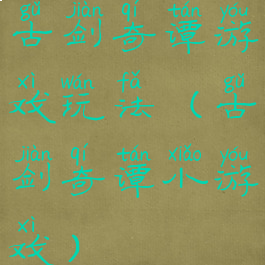 gǔ jiàn qí tán yóu
古剑奇谭游
xì wán fǎ gǔ
戏玩法（古
jiàn qí tán xiǎo yóu
剑奇谭小游
xì
戏）